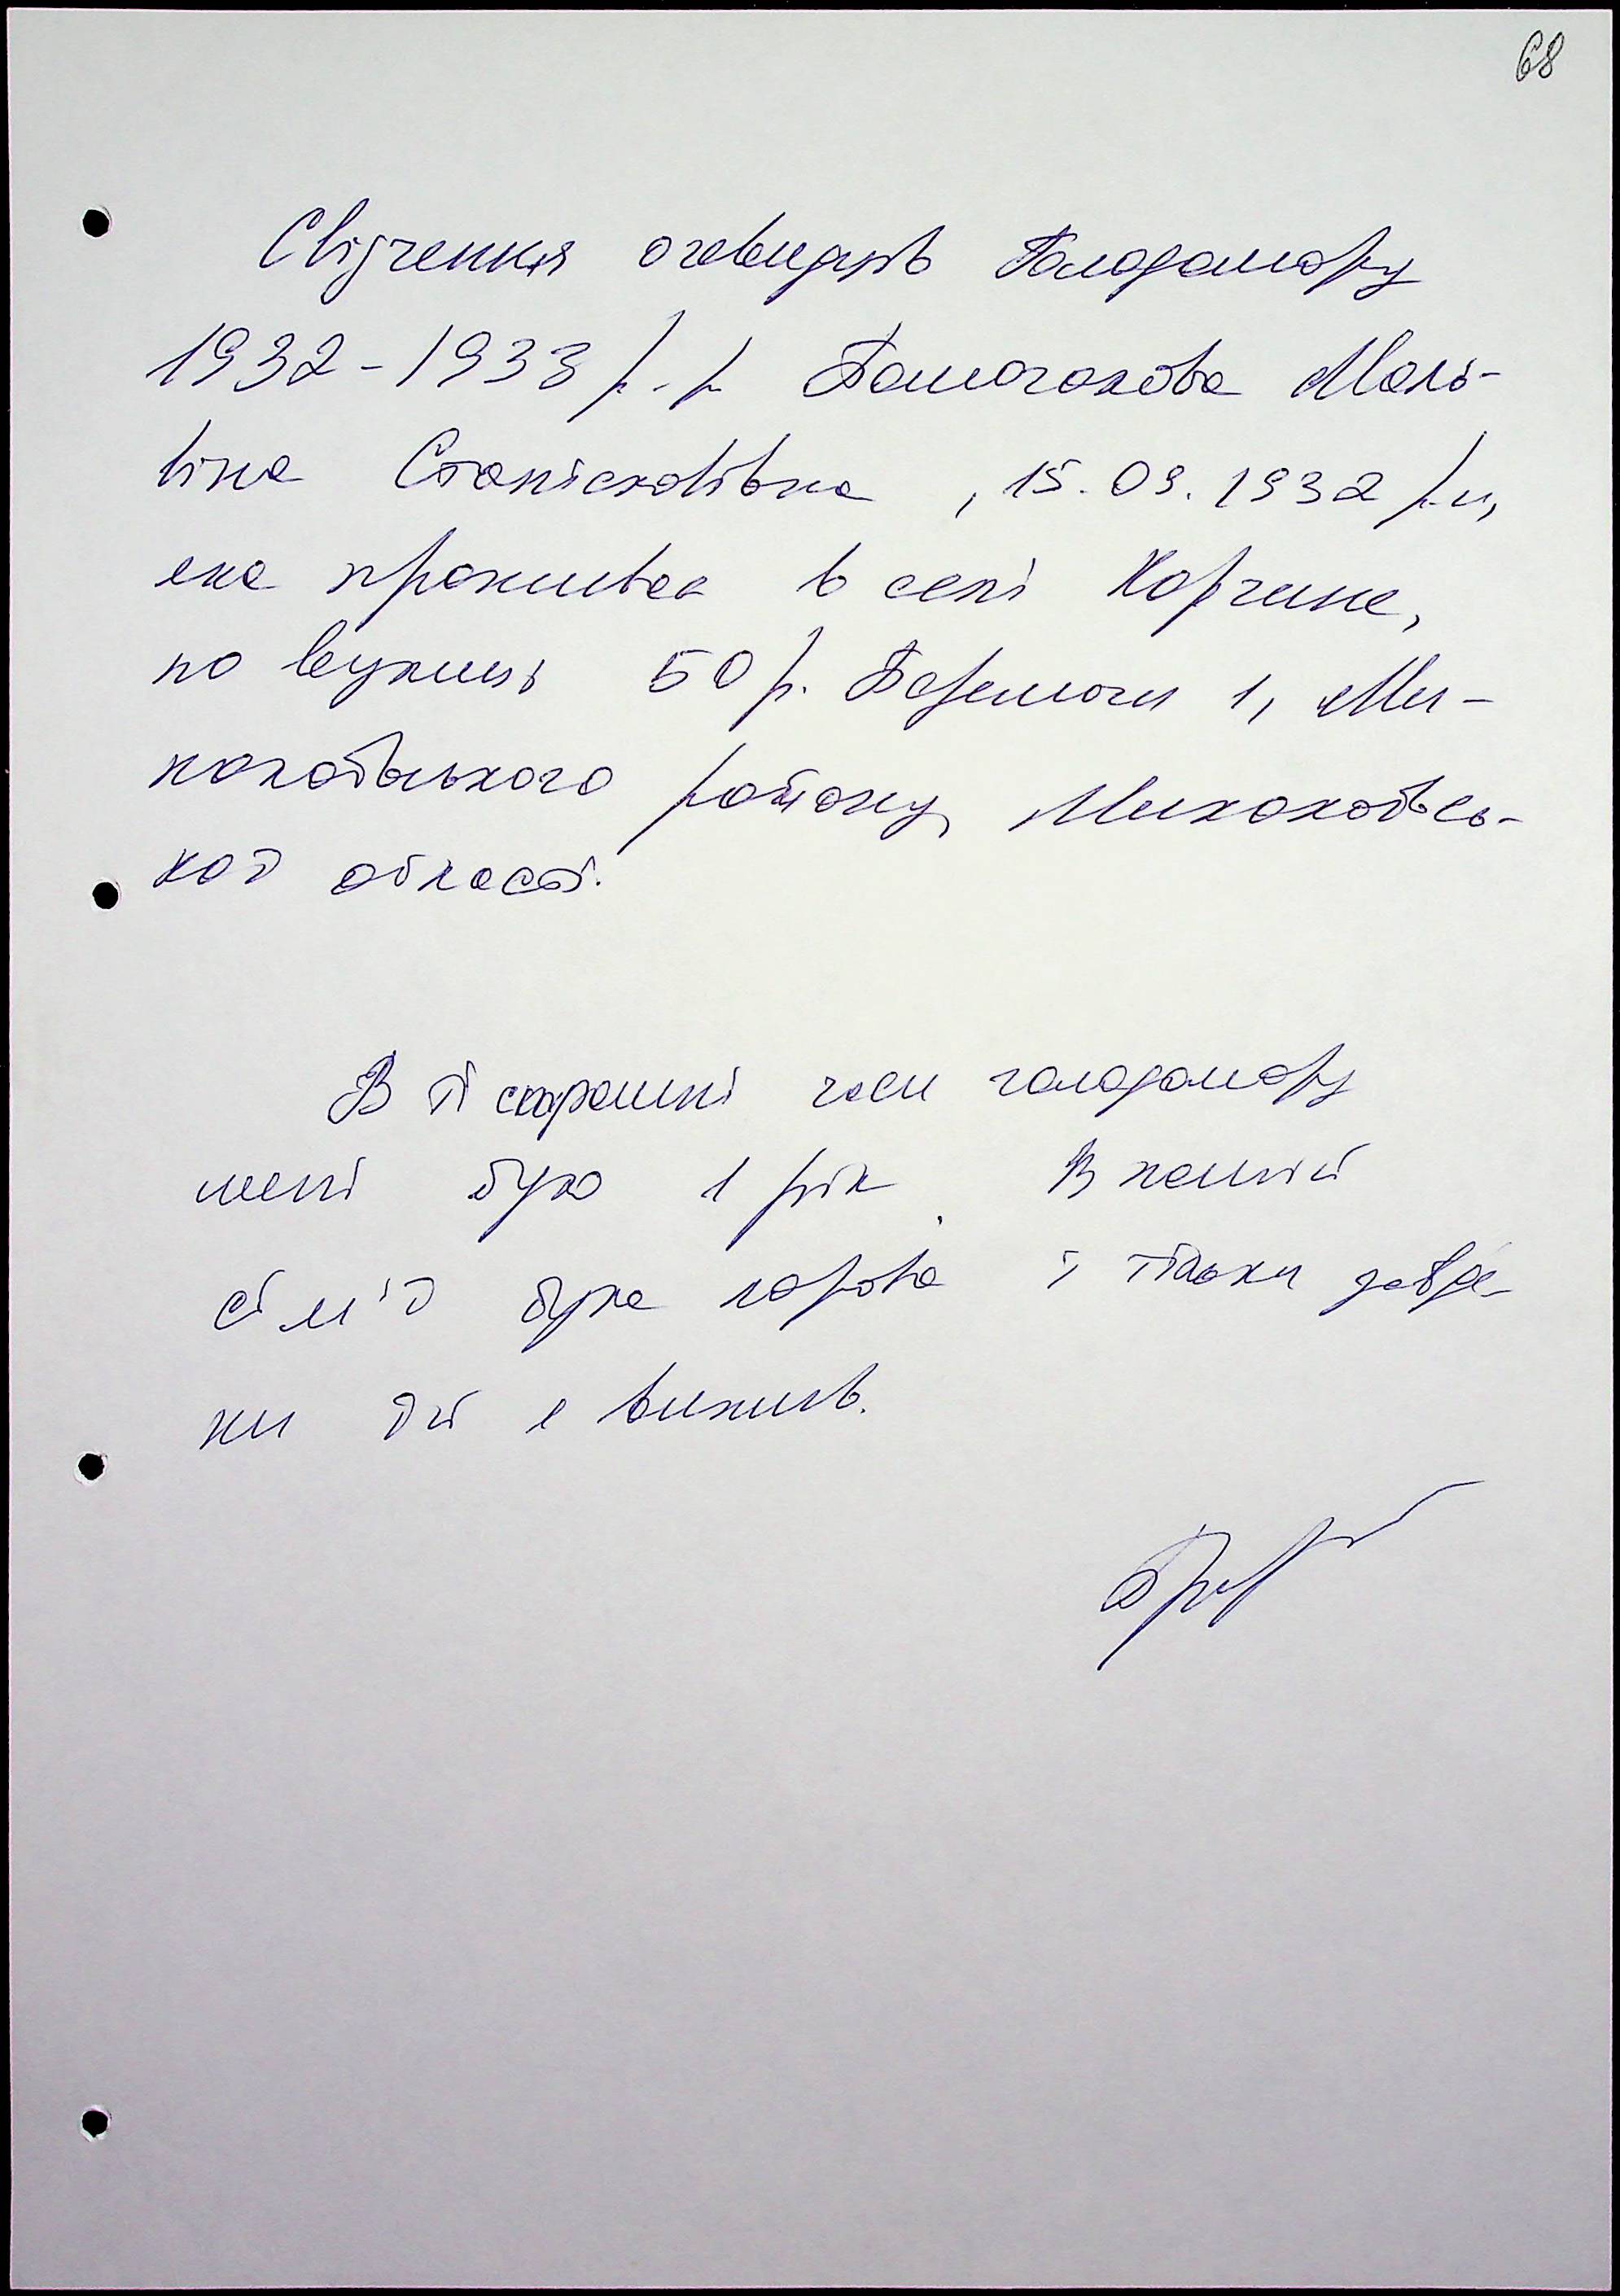 68
Свідчення очевидців Голодомору
1932-1933 р.р Маль-
віна Станіславівна, 15.09.1932 р.н,
яка проживає в селі Корчине,
по вулиці 50 р. Перемоги 1, Ми-
колаївського району, Миколаївсь-
кої області.
В ті страшні часи голодомору
мені було 1 рік. В нашій
сім'ї була корова і тільки завдя-
ки їй я вижив.